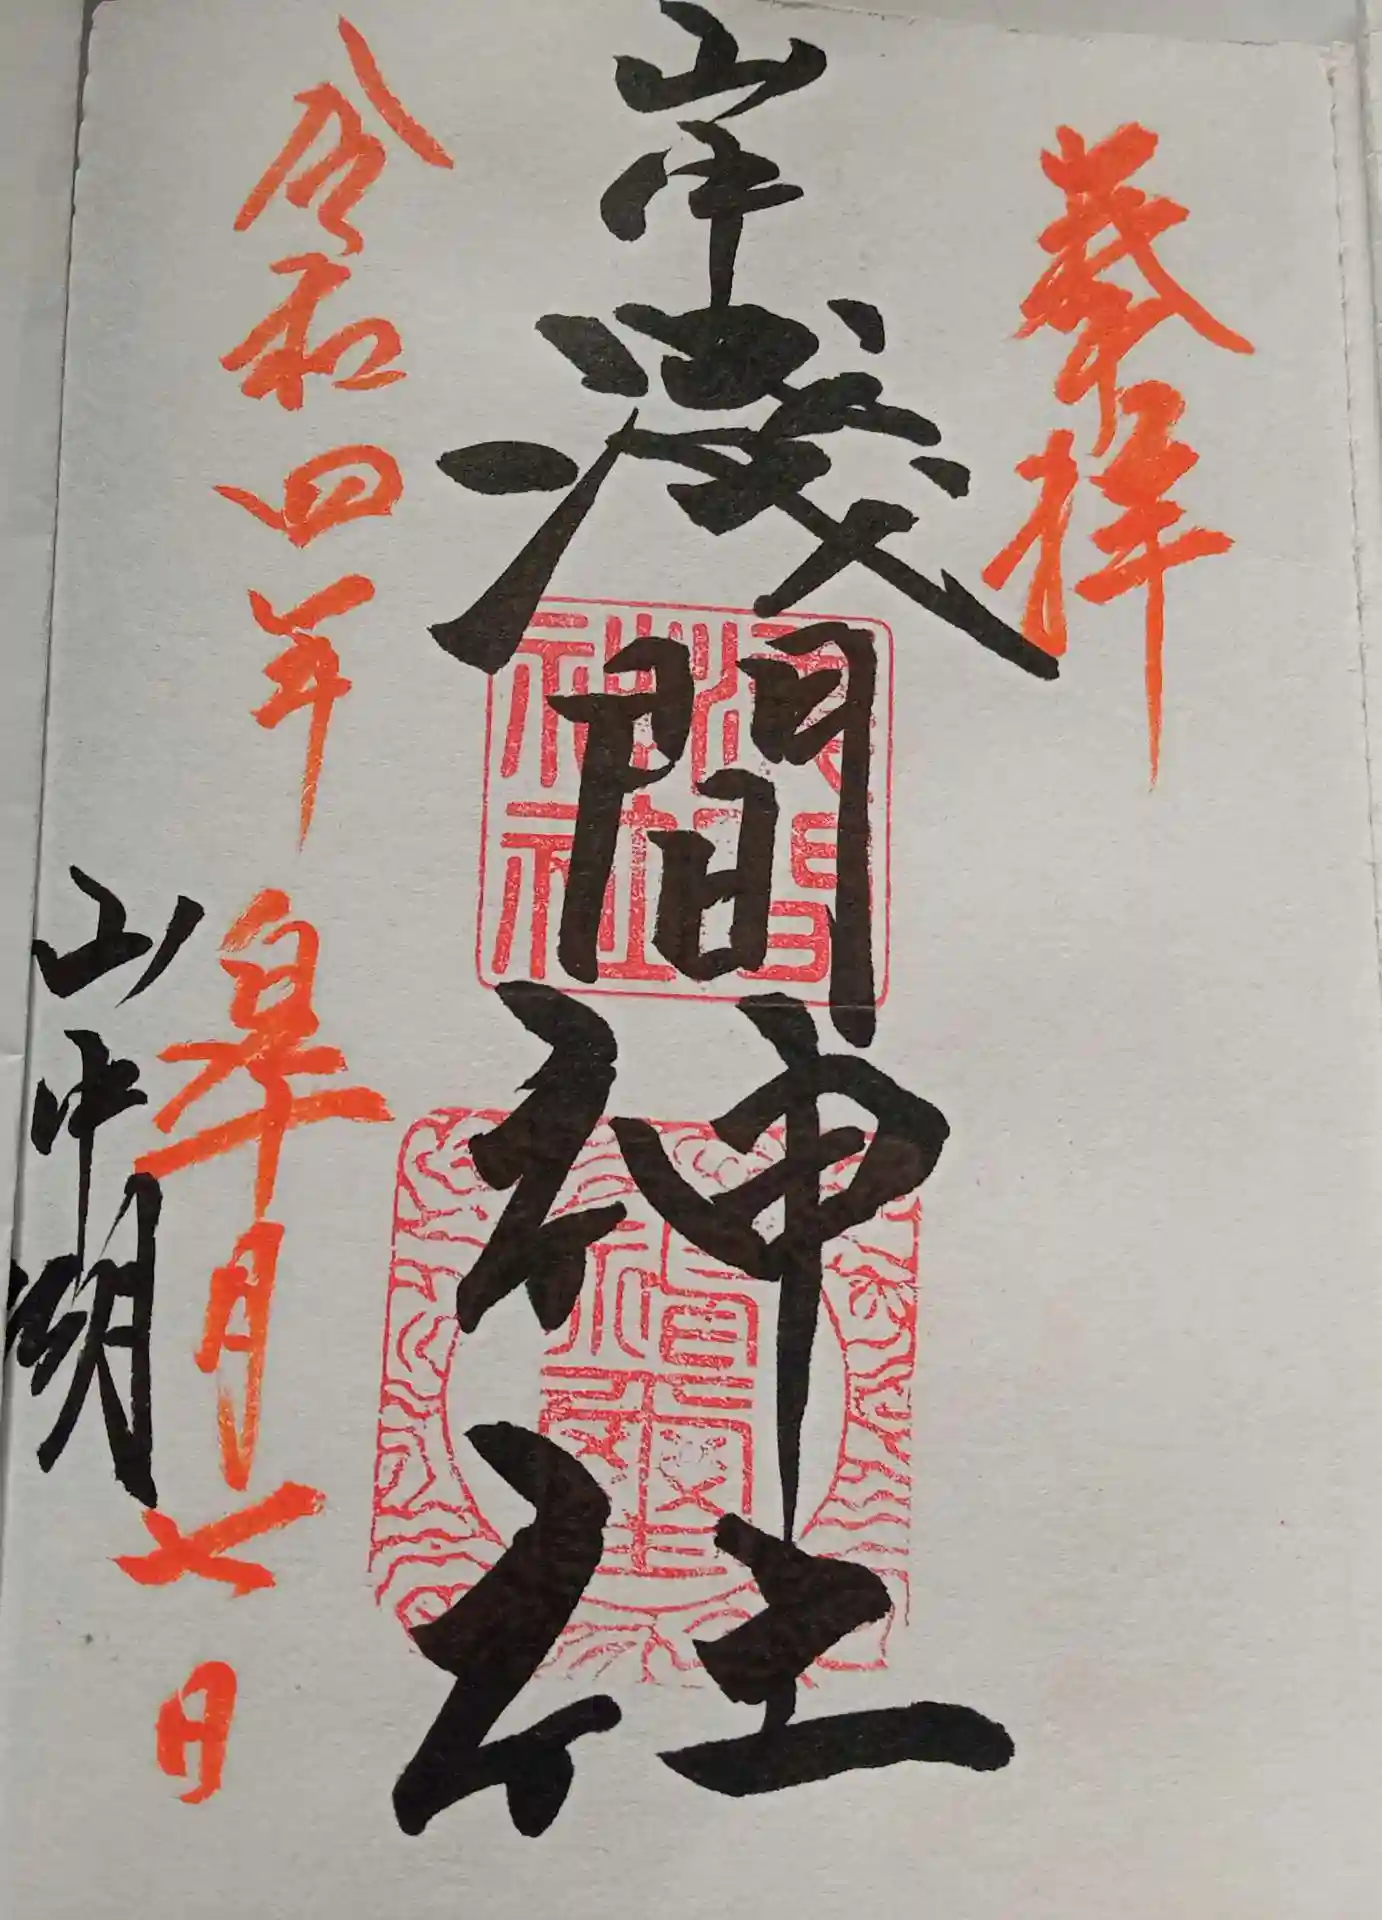 奉拝
山中
淺間神社
淺間
神社
令和四年皐月七日
山中湖